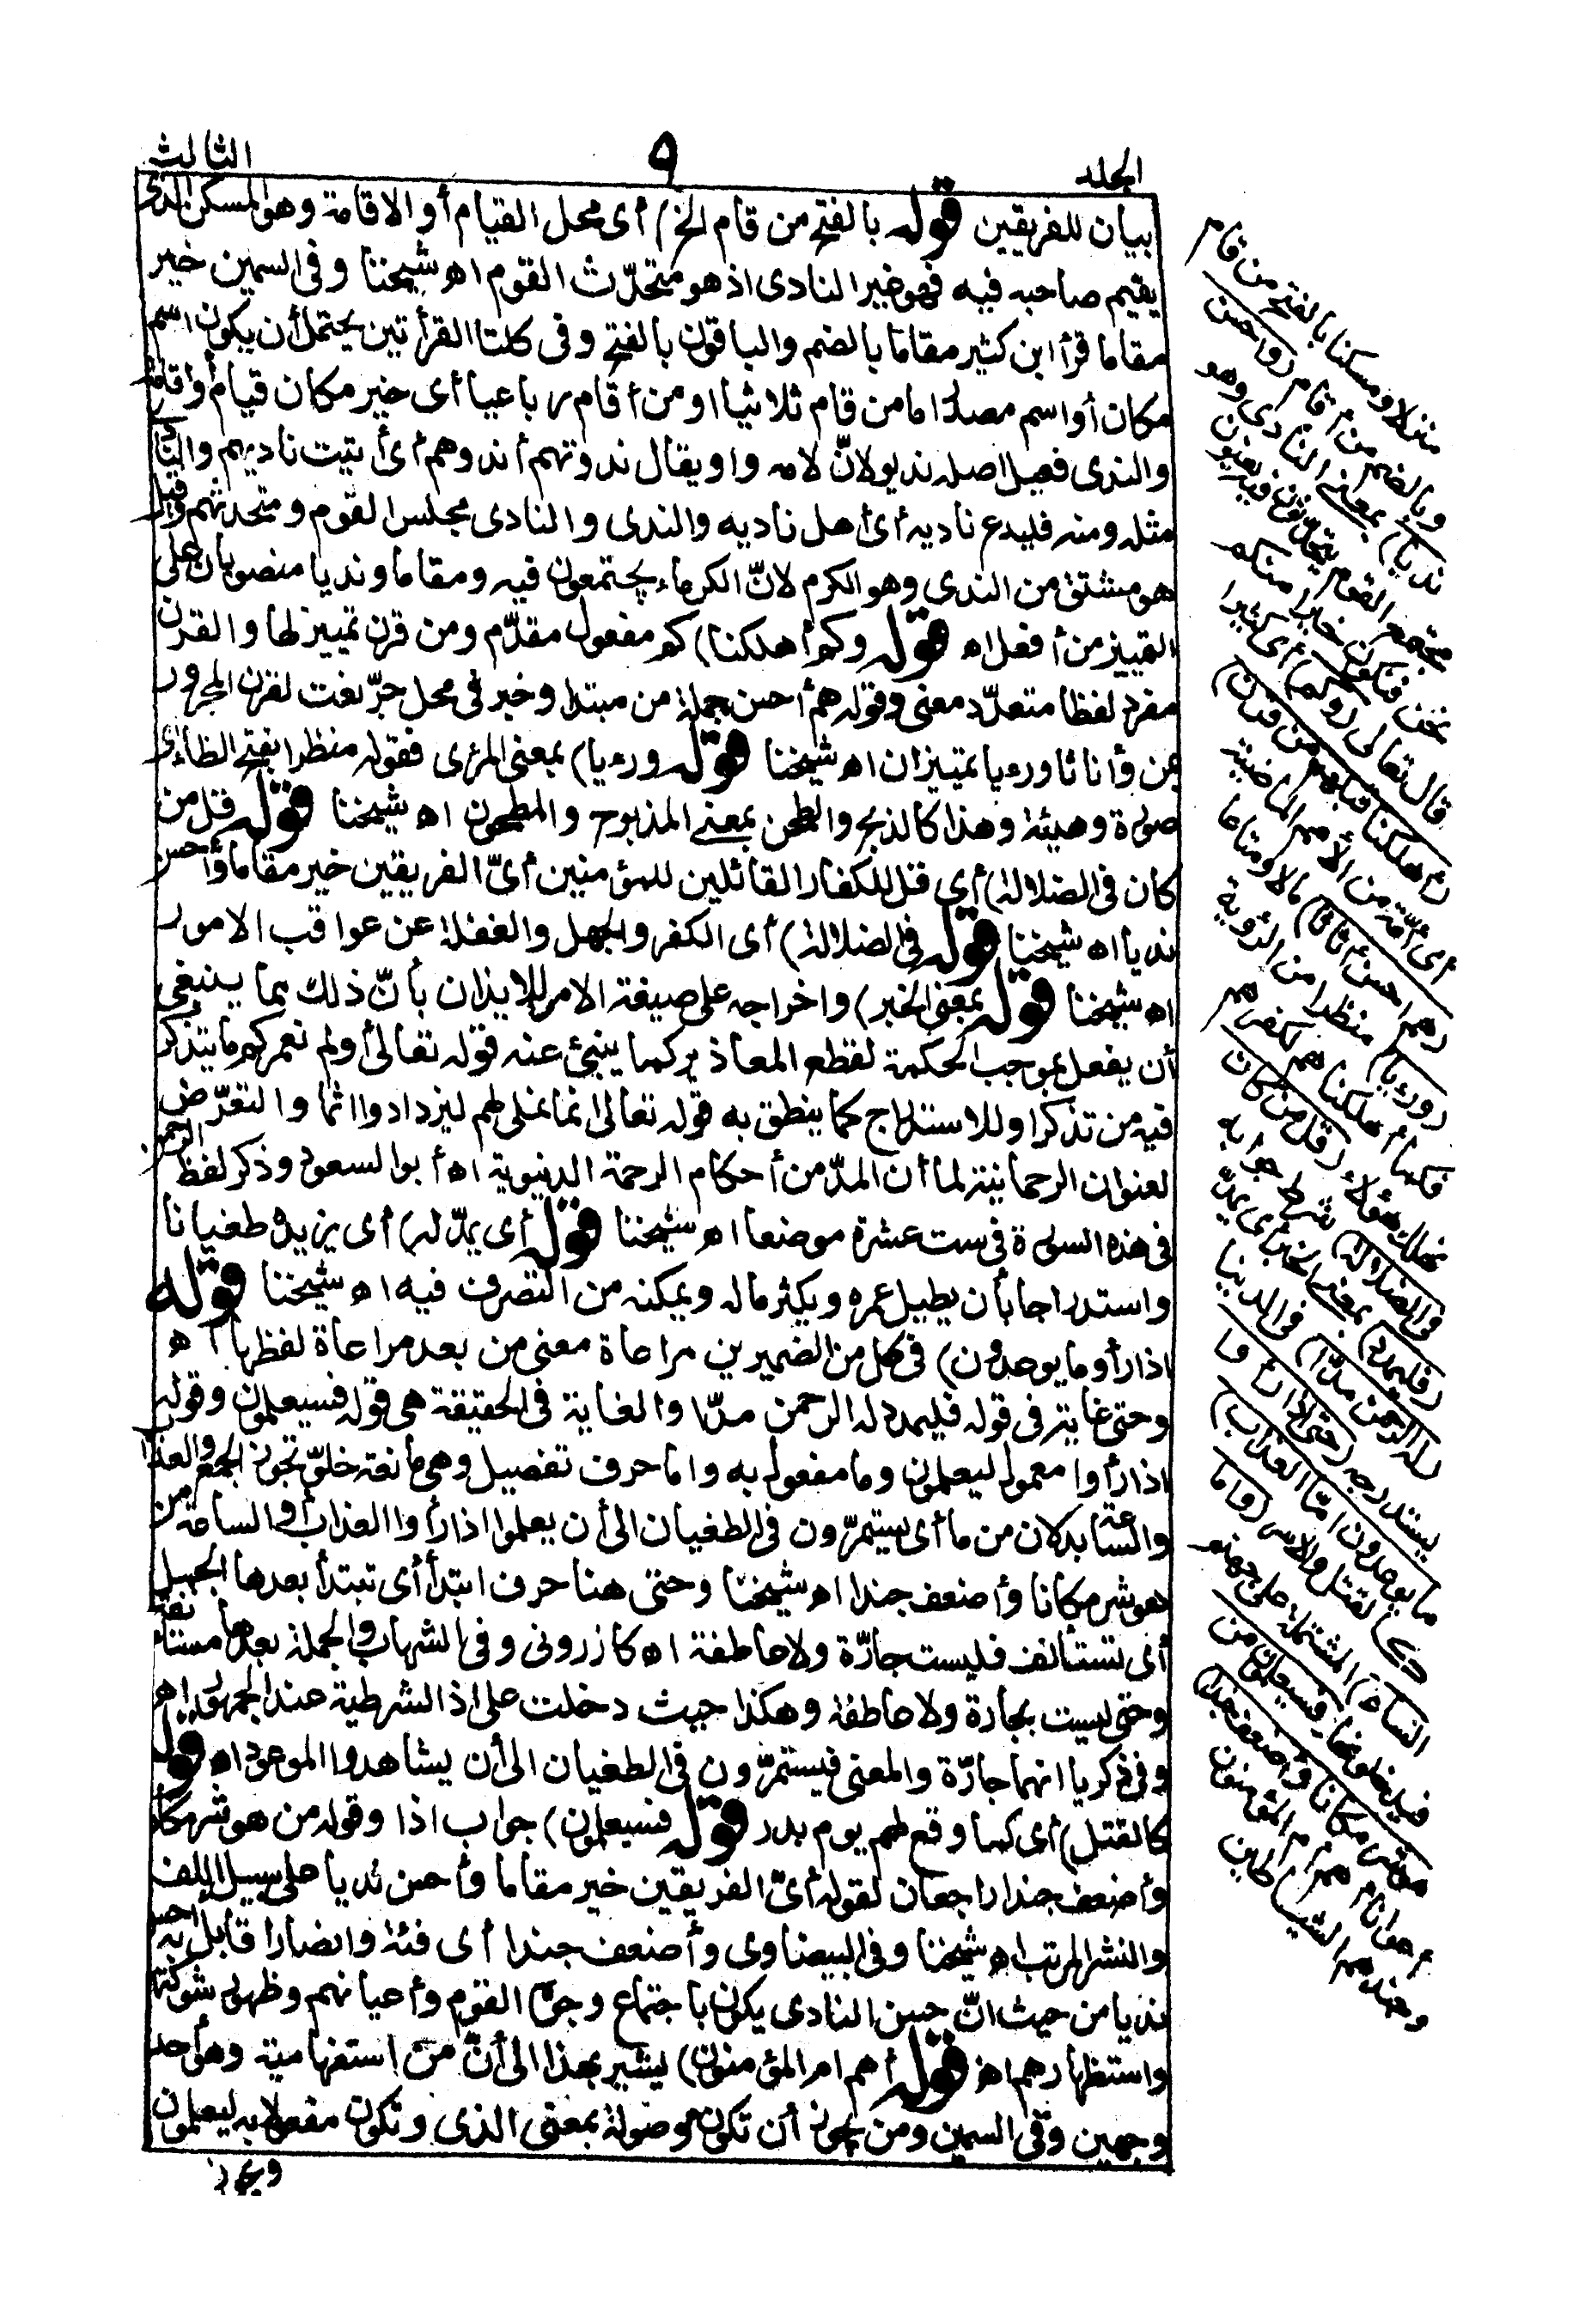 الجلد
٩
الثالث
بيان للفريقين قوله بالفتح من قام الخ) أى محل القيام أو الاقامة وهو المسكن الذى
يقيم صاحبه فيه فهو غير النادى اذ هو متحدّث القوم اه شيخنا وفى السمين خير
مقاما قرأ ابن كثير مقاما بالضم والباقون بالفتح وفى كلتا القرأتين يحتمل أن يكون اسم
مكان أو اسم مصدر اما من قام ثلاثيا او من أقام رباعيا أى خير مكان قيام أو اقامة
والندى فعيل اصله نديو لانّ لامه واو يقال ندوتهم أندوهم أى أتيت ناديهم والنادى
مثله ومنه فليدع ناديه أى أهل ناديه والندى والنادى مجلس القوم ومتحدثهم وقيل
هو مشتق من الندى وهو الكرم لانّ الكرماء يجتمعون فيه ومقاما ونديا منصوبان على
التمييز من أفعل اه قوله وكم أهلكنا) كم مفعول مقدّم ومن قرن تمييز لها والقرن
مفرد لفظا متعدّد معنى وقوله هم أحسن جملة من مبتدا وخبر فى محل جرّ نعت لقرن المجرور
بمن وأثاثا ورءيا تمييزان اه شيخنا قوله ورءيا) بمعنى المرئى فقوله منظرا بفتح الظاء أى
صورة وهيئة وهذا كالذبح والطحن بمعنى المذبوح والمطحون اه شيخنا قوله قل من
كان فى الضلالة) أى قل للكفار القائلين للمؤمنين أىّ الفريقين خير مقاما وأحسن
نديا اه شيخنا قوله فى الضلالة) أى الكفر والجهل والغفلة عن عواقب الامور
اه شيخنا قوله بمعنى الخبر) واخراجه على صيغة الامر للايذان بأنّ ذلك بما ينبغى
أن يفعل بموجب الحكمة لقطع المعاذير كما ينبئ عنه قوله تعالى أولم نعمركم ما يتذكر
فيه من تذكر او للاستدراج كما ينطق به قوله تعالى انما نملى لهم ليزدادوا اثما والتعرّض
لعنوان الرحمانية لما أن المدّ من أحكام الرحمة الدنيوية اه أبو السعود وذكر لفظ الرحمن
فى هذه السورة فى ست عشرة موضعا اه شيخنا قوله أى يمدّ له) أى يزيده طغيانا
واستدراجا بأن يطيل عمره ويكثر ماله ويمكنه من التصرف فيه اه شيخنا قوله
اذا رأوا ما يوعدون) فى كل من الضميرين مراعاة معنى من بعد مراعاة لفظها اه
وحتى غاية فى قوله فليمدد له الرحمن مدّا والغاية فى الحقيقة هى قوله فسيعلمون وقوله
اذا رأوا معمول ليعلمون وما مفعول به واما حرف تفصيل وهى مانعة خلوّ تجوز الجمع والعذاب
والساعة بدلان من ما أى يستمرّون فى الطغيان الى أن يعلموا اذا رأوا العذاب أو الساعة من
هو شر مكانا وأضعف جندا اه شيخنا وحتى هنا حرف ابتدأ أى تبتدأ بعدها الجمل
أى تستأنف فليست جارّة ولا عاطفة اه كازرونى وفى الشهاب والجملة بعدها مستأنفة
وحتى ليست بجارة ولا عاطفة وهكذا حيث دخلت على اذا الشرطية عند الجمهور اه
وفى زكريا انهما جارّة والمعنى فيستمرّون فى الطغيان الى أن يشاهدوا الموعود اه قوله
كالقتل) أى كما وقع لهم يوم بدر قوله فسيعلمون) جواب اذا وقوله من هو شر مكانا
وأضعف جندا راجعان لقوله أىّ الفريقين خير مقاما وأحسن نديا على سبيل اللف
والنشر المرتب اه شيخنا وفى البيضاوى وأضعف جندا أى فئة وانصارا قابل به أحسن
نديا من حيث انّ حسن النادى يكون باجتماع وجوه القوم وأعيانهم وظهور شوكتهم
واستظهارهم اه قوله أهم ام المؤمنون) يشير بهذا الى أنّ من استفهامية وهى أحد
وجهين وفى السمين ومن يجوز أن تكون موصولة بمعنى الذى وتكون مفعولا به ليعلمون
ويجوز
منزلا ومسكنا بالفتح من قام
وبالضم من أقام (وأحسن
نديا) بمعنى النادى وهو
مجتمع القوم يتحدّثون فيه يعنون
نحن فنكون خيرا منكم
قال تعالى (وكم) أى كثيرا
(أهلكنا قبلهم من قرن)
أى أمّة من الأمم الماضية
(هم احسن أثاثا) مالا ومتاعا
(ورءيا) منظرا من الرؤية
فكما أهلكناهم لكفرهم
نهلك هؤلاء (قل من كان
فى الضلالة) شرط جوابه
(فليمدد) بمعنى الخبر أى يمدّ
(له الرحمن مدّا) فى الدنيا
يستدرجه (حتى اذا رأوا
ما يوعدون امّا العذاب)
كالقتل والاسر (واما
الساعة) المشتملة على جهنم
فيدخلونها (فسيعلمون من
هو شر مكانا وأضعف جندا)
أعوانا أهم أم المؤمنون
وجندهم الشياطين